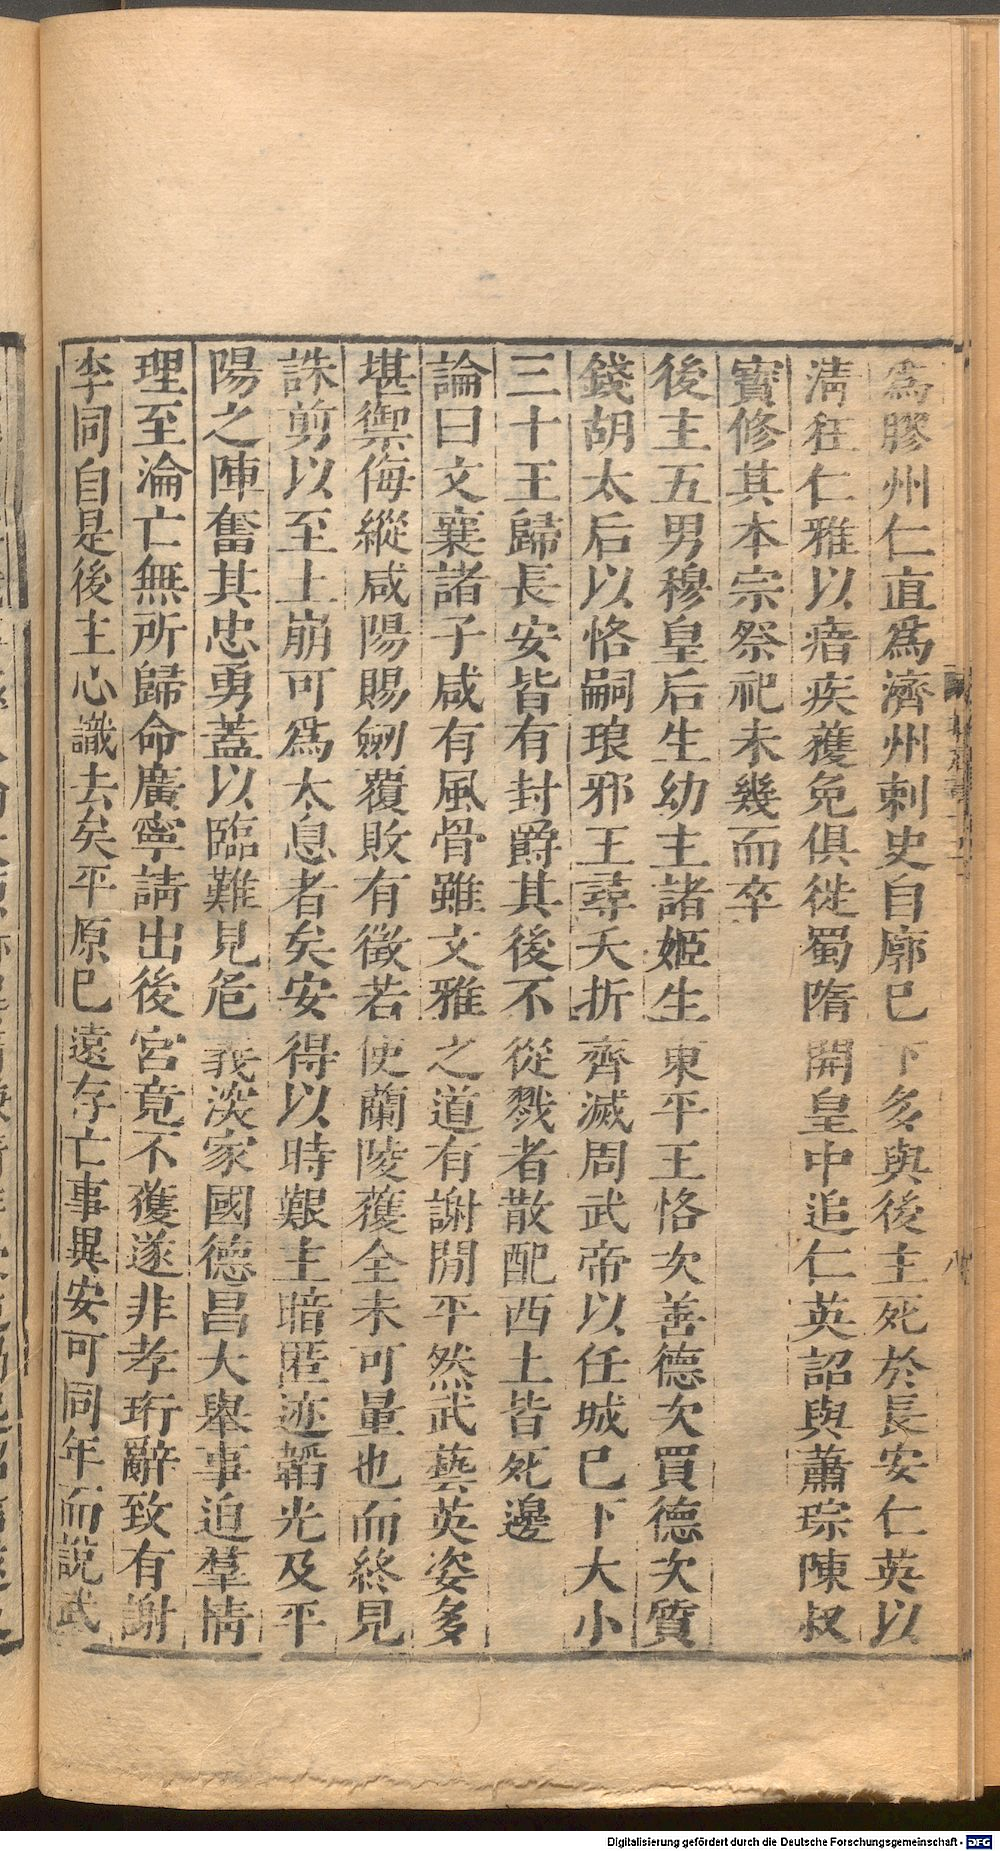 爲膠州仁直爲濟州刺史自廓已下多與後主死於長安仁英以
淸狂仁雅以瘖疾獲免俱徙蜀隋開皇中追仁英詔與蕭琮陳叔
寶修其本宗祭祀未幾而卒
後主五男穆皇后生幼主諸姬生東平王恪次善德次買德次質
錢胡太后以恪嗣琅邪王尋夭折齊滅周武帝以任城已下大小
三十王歸長安皆有封爵其後不從戮者散配西土皆死邊
論曰文襄諸子咸有風骨雖文雅之道有謝閒平然武藝英姿多
堪禦侮縱咸陽賜劍覆敗有徵若使蘭陵獲全未可量也而終見
誅剪以至土崩可爲太息者矣安得以時艱主暗匿迹韜光及平
陽之陣奮其忠勇蓋以臨難見危義深家國德昌大舉事迫羣情
理至淪亡無所歸命廣寧請出後宮竟不獲遂非孝珩辭致有謝
李同自是後主心識去矣平原已遠存亡事異安可同年而說武
Digitalisierung gefördert durch die Deutsche Forschungsgemeinschaft - DFG